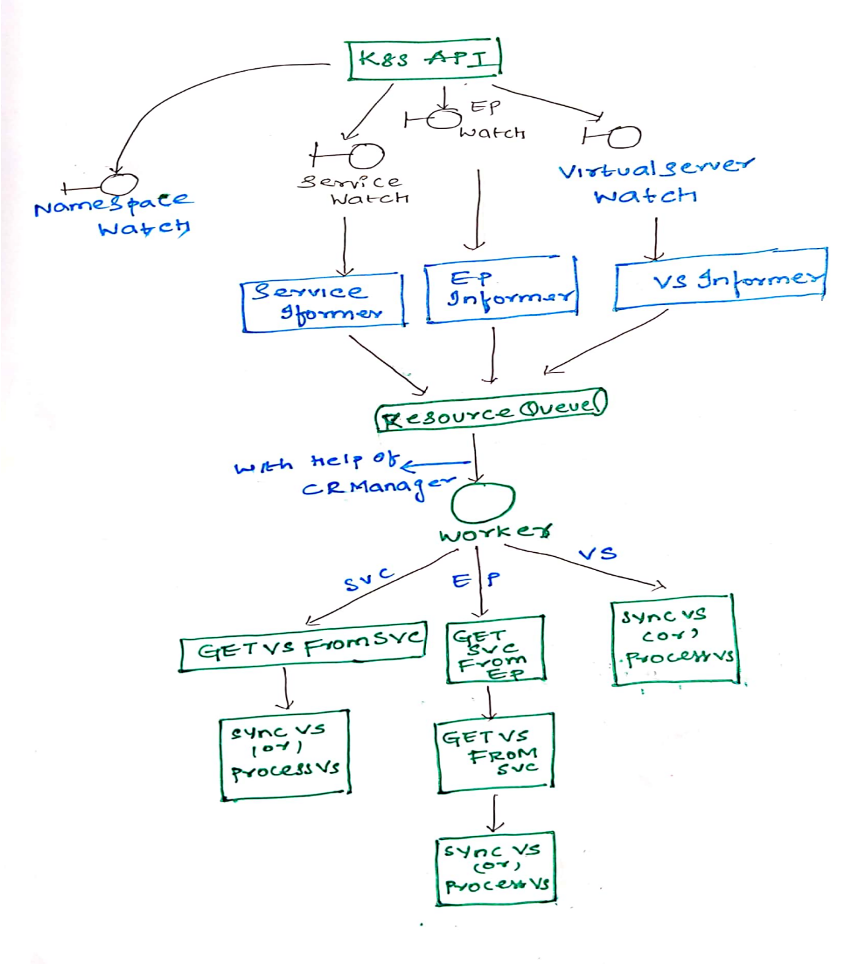 K8S API
EP
Watch
Service
Watch
VirtualServer
Watch
NameSpace
Watch
Service
Iformer
EP
Informer
VS Informer
Resource Queue
With Help Of
CRManager
Worker
SVC
EP
VS
GET VS From SVC
GET
SVC
From
EP
Sync VS
(or)
ProcessVS
Sync VS
(or)
ProcessVS
GET VS
FROM
SVC
Sync VS
(or)
ProcessVS